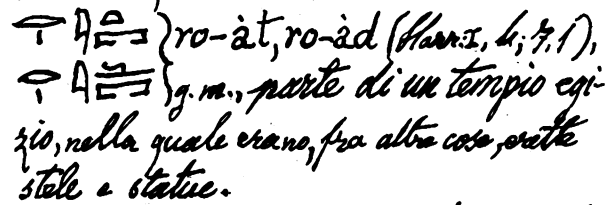 ro-àt, ro-àd (Harr. I, 4; 7, 1),
g. m., parte di un tempio egi-
zio, nella quale erano, fra altre cose, eratte
stele e statue.